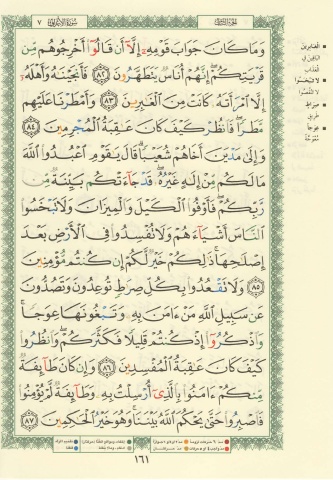 الجزء الثامن
سورة الأعراف ٧
وَمَا كَانَ جَوَابَ قَوْمِهِۦٓ إِلَّآ أَن قَالُوٓا۟ أَخْرِجُوهُم مِّن
قَرْيَتِكُمْ ۖ إِنَّهُمْ أُنَاسٌ يَتَطَهَّرُونَ ﴿٨٢﴾ فَأَنجَيْنَٰهُ وَأَهْلَهُۥٓ
إِلَّا ٱمْرَأَتَهُۥ كَانَتْ مِنَ ٱلْغَٰبِرِينَ ﴿٨٣﴾ وَأَمْطَرْنَا عَلَيْهِم
مَّطَرًا ۖ فَٱنظُرْ كَيْفَ كَانَ عَٰقِبَةُ ٱلْمُجْرِمِينَ ﴿٨٤﴾
وَإِلَىٰ مَدْيَنَ أَخَاهُمْ شُعَيْبًا ۗ قَالَ يَٰقَوْمِ ٱعْبُدُوا۟ ٱللَّهَ
مَا لَكُم مِّنْ إِلَٰهٍ غَيْرُهُۥ ۖ قَدْ جَآءَتْكُم بَيِّنَةٌ مِّن
رَّبِّكُمْ ۖ فَأَوْفُوا۟ ٱلْكَيْلَ وَٱلْمِيزَانَ وَلَا تَبْخَسُوا۟
ٱلنَّاسَ أَشْيَآءَهُمْ وَلَا تُفْسِدُوا۟ فِى ٱلْأَرْضِ بَعْدَ
إِصْلَٰحِهَا ۚ ذَٰلِكُمْ خَيْرٌ لَّكُمْ إِن كُنتُم مُّؤْمِنِينَ
﴿٨٥﴾ وَلَا تَقْعُدُوا۟ بِكُلِّ صِرَٰطٍ تُوعِدُونَ وَتَصُدُّونَ
عَن سَبِيلِ ٱللَّهِ مَنْ ءَامَنَ بِهِۦ وَتَبْغُونَهَا عِوَجًا ۚ
وَٱذْكُرُوٓا۟ إِذْ كُنتُمْ قَلِيلًا فَكَثَّرَكُمْ ۖ وَٱنظُرُوا۟
كَيْفَ كَانَ عَٰقِبَةُ ٱلْمُفْسِدِينَ ﴿٨٦﴾ وَإِن كَانَ طَآئِفَةٌ
مِّنكُمْ ءَامَنُوا۟ بِٱلَّذِىٓ أُرْسِلْتُ بِهِۦ وَطَآئِفَةٌ لَّمْ يُؤْمِنُوا۟
فَٱصْبِرُوا۟ حَتَّىٰ يَحْكُمَ ٱللَّهُ بَيْنَنَا ۚ وَهُوَ خَيْرُ ٱلْحَٰكِمِينَ ﴿٨٧﴾
الغابرين
الباقين في
العذاب
لا تبخسوا
لا تنقصوا
صراط
طريق
عوجا
معوجة
١٦١